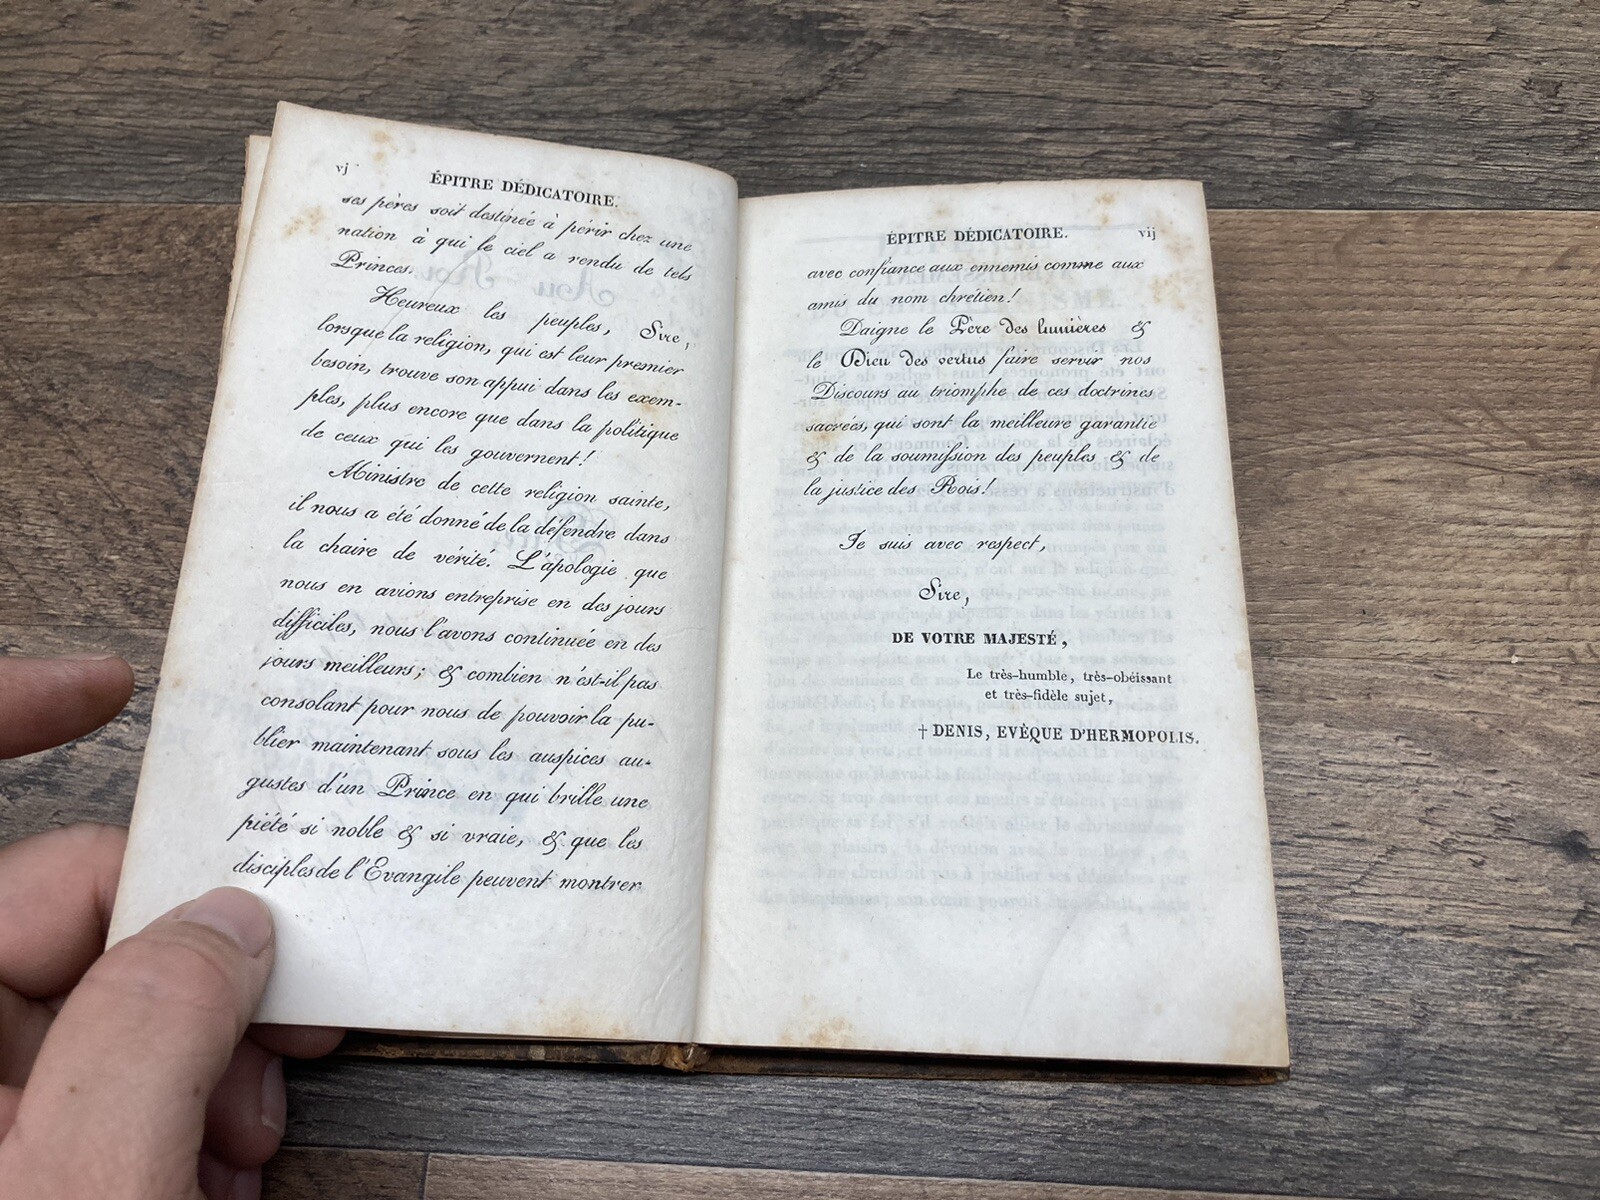 vj
ÉPITRE DÉDICATOIRE.
ses pères soit destinée à périr chez une
nation à qui le ciel a rendu de tels
Princes.
Heureux les peuples, Sire,
lorsque la religion, qui est leur premier
besoin, trouve son appui dans les exem-
ples, plus encore que dans la politique
de ceux qui les gouvernent!
Ministre de cette religion sainte,
il nous a été donné de la défendre dans
la chaire de vérité. L'apologie que
nous en avions entreprise en des jours
difficiles, nous l'avons continuée en des
jours meilleurs; & combien n'est-il pas
consolant pour nous de pouvoir la pu-
blier maintenant sous les auspices au-
gustes d'un Prince en qui brille une
piété si noble & si vraie, & que les
disciples de l'Evangile peuvent montrer
ÉPITRE DÉDICATOIRE.
vij
avec confiance aux ennemis comme aux
amis du nom chrétien!
Daigne le Père des lumières &
le Dieu des vertus faire servir nos
Discours au triomphe de ces doctrines
sacrées, qui sont la meilleure garantie
& de la soumission des peuples & de
la justice des Rois!
Je suis avec respect,
Sire,
DE VOTRE MAJESTÉ,
Le très-humble, très-obéissant
et très-fidèle sujet,
† DENIS, EVÈQUE D'HERMOPOLIS.